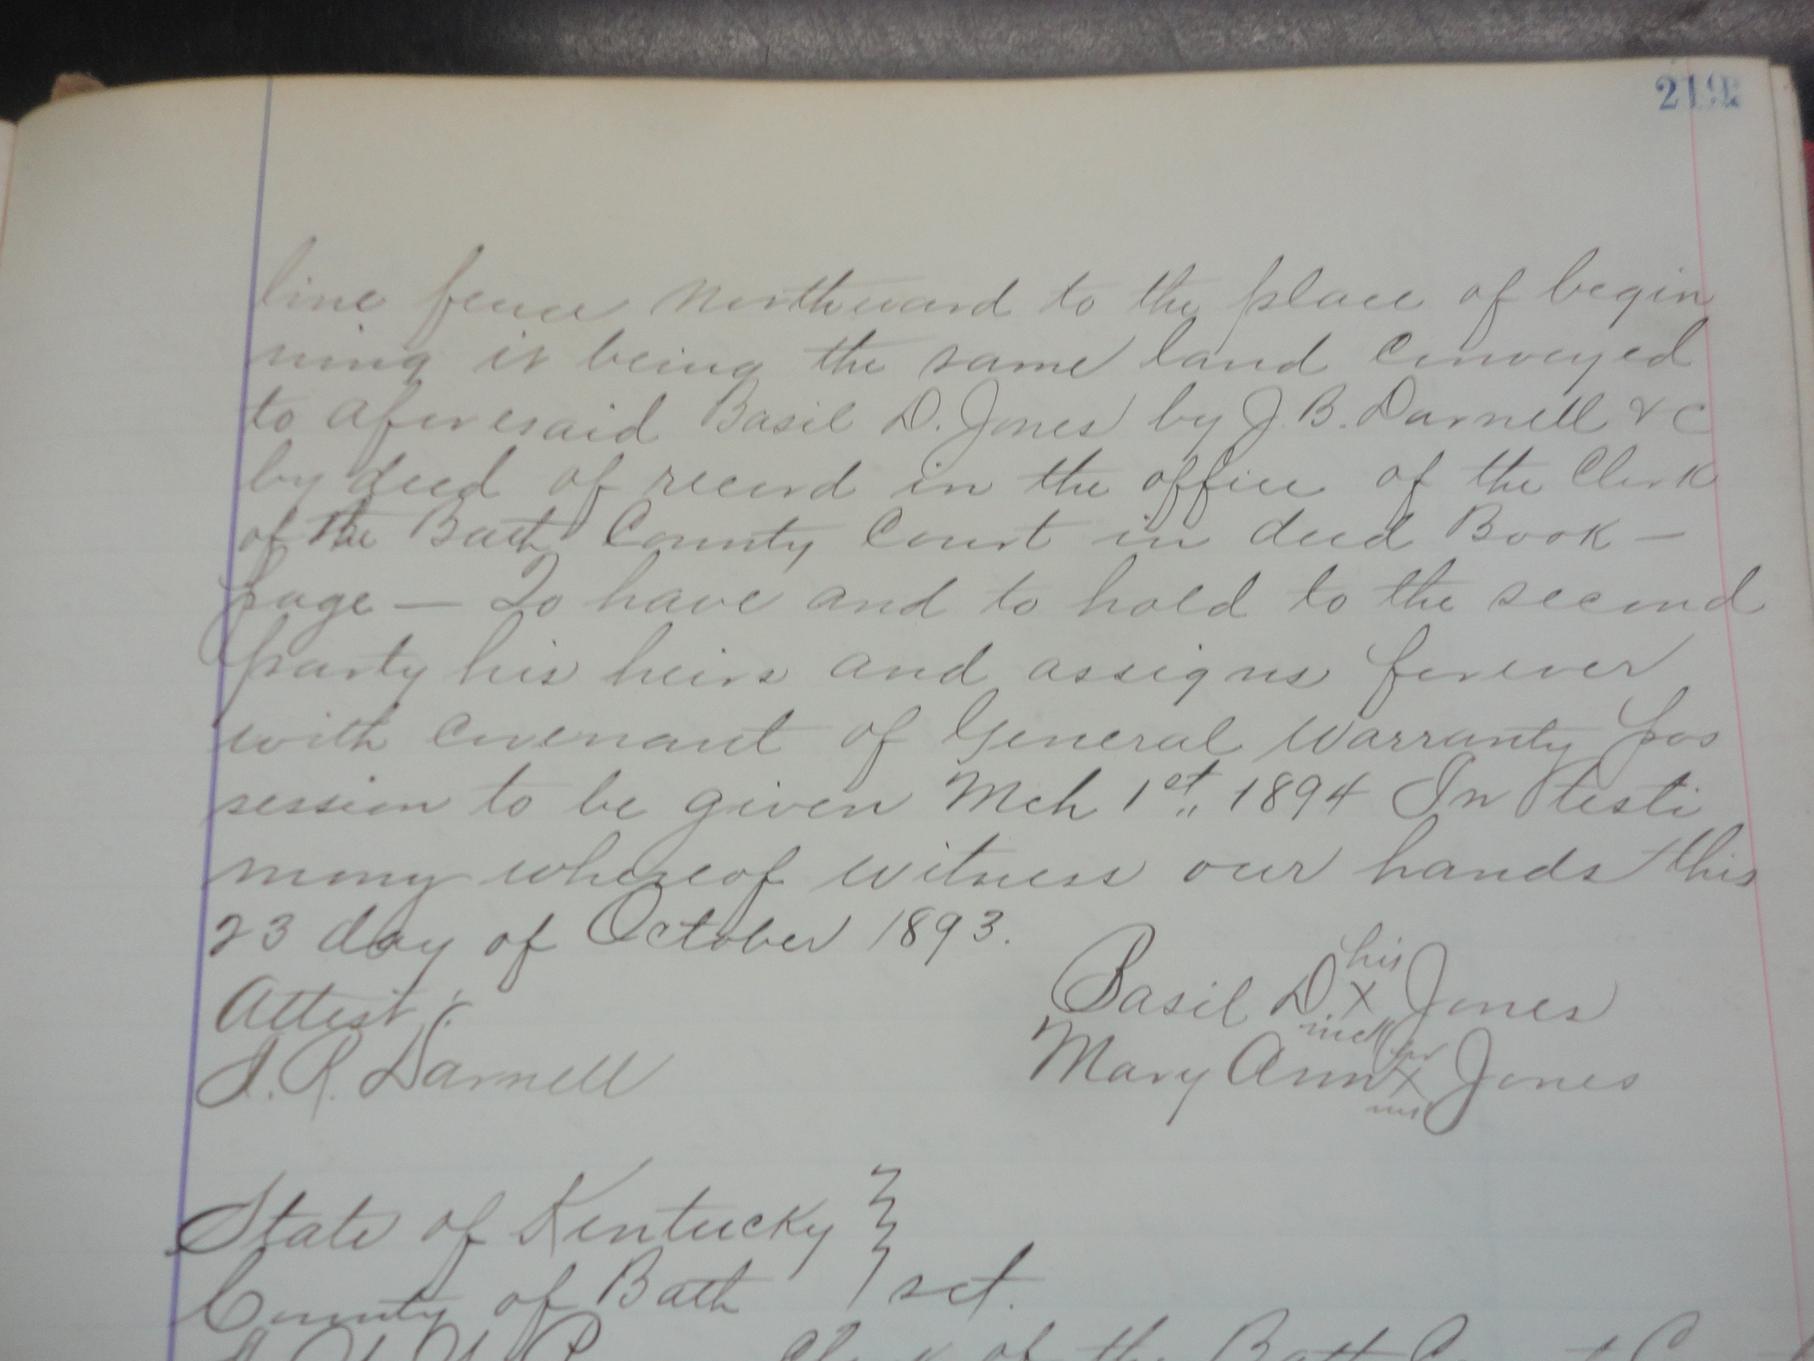 219
line fence northward to the place of begin
ning it being the same land conveyed
to aforesaid Basil D. Jones by J. B. Darnell & C
by deed of record in the office of the Clerk
of the Bath County Court in deed Book —
page — To have and to hold to the second
party his heirs and assigns forever
with covenant of General Warranty pos
session to be given Mch 1st, 1894 In testi
mony whereof witness our hands this
23 day of October 1893.
his
Basil D X Jones
Attest:
Mary Ann X Jones
J. R. Darnell
State of Kentucky
County of Bath } sct.
Clerk of the Bath County